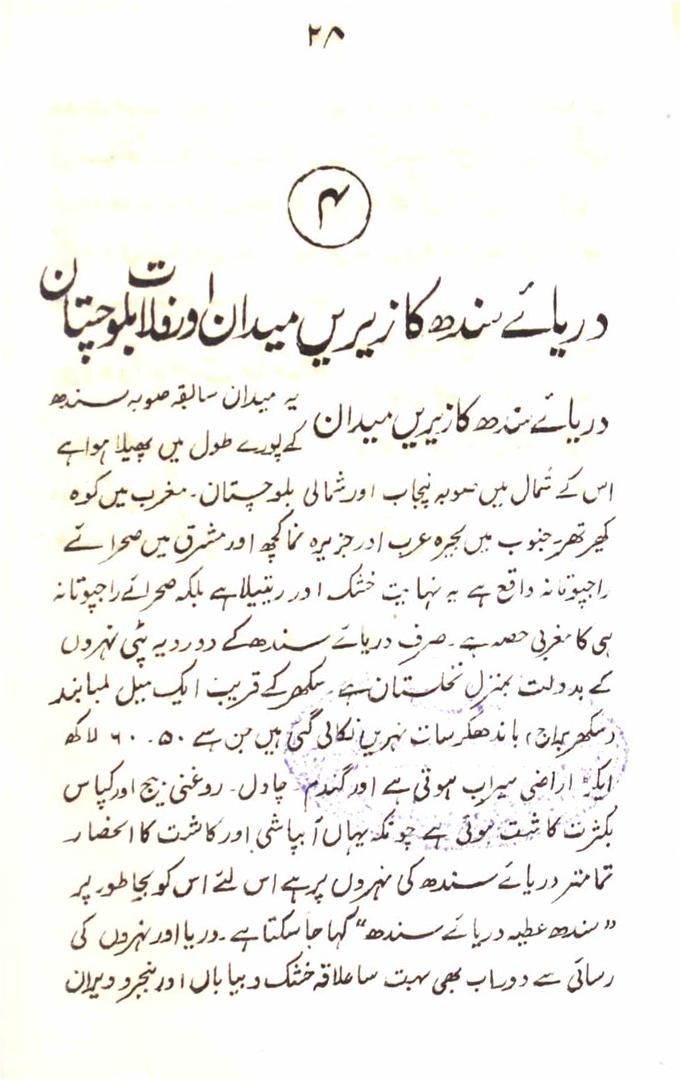 ۲۸
۴
دریائے سندھ کا زیریں میدان اور قلات بلوچستان
دریائے سندھ کا زیریں میدان
یہ میدان سابقہ صوبہ سندھ
کے پورے طول میں پھیلا ہوا ہے
اس کے شمال میں صوبہ پنجاب اور شمالی بلوچستان۔ مغرب میں کوہ
کھیرتھر، جنوب میں بحیرہ عرب اور جزیرہ نما کچھ اور مشرق میں صحرائے
راجپوتانہ واقع ہے یہ نہایت خشک اور ریتیلا ہے بلکہ صحرائے راجپوتانہ
ہی کا مغربی حصہ ہے۔ صرف دریائے سندھ کے دو رویہ پٹی نہروں
کے بدولت بمنزل نخلستان ہے۔ سکھر کے قریب ایک میل لمبا بند
(سکھر بیراج) باندھکر سات نہریں نکالی گئی ہیں جن سے ۵۰۔ ۶۰ لاکھ
ایکڑ اراضی سیراب ہوتی ہے اور گندم۔ چاول۔ روغنی بیج اور کپاس
بکثرت کاشت ہوتی ہے چونکہ یہاں آبپاشی اور کاشت کا انحصار
تمامتر دریائے سندھ کی نہروں پر ہے اس لئے اس کو بجا طور پر
”سندھ عطیہ دریائے سندھ“ کہا جا سکتا ہے۔ دریا اور نہروں کی
رسائی سے دور اب بھی بہت سا علاقہ خشک و بیاباں اور بنجر و ویران